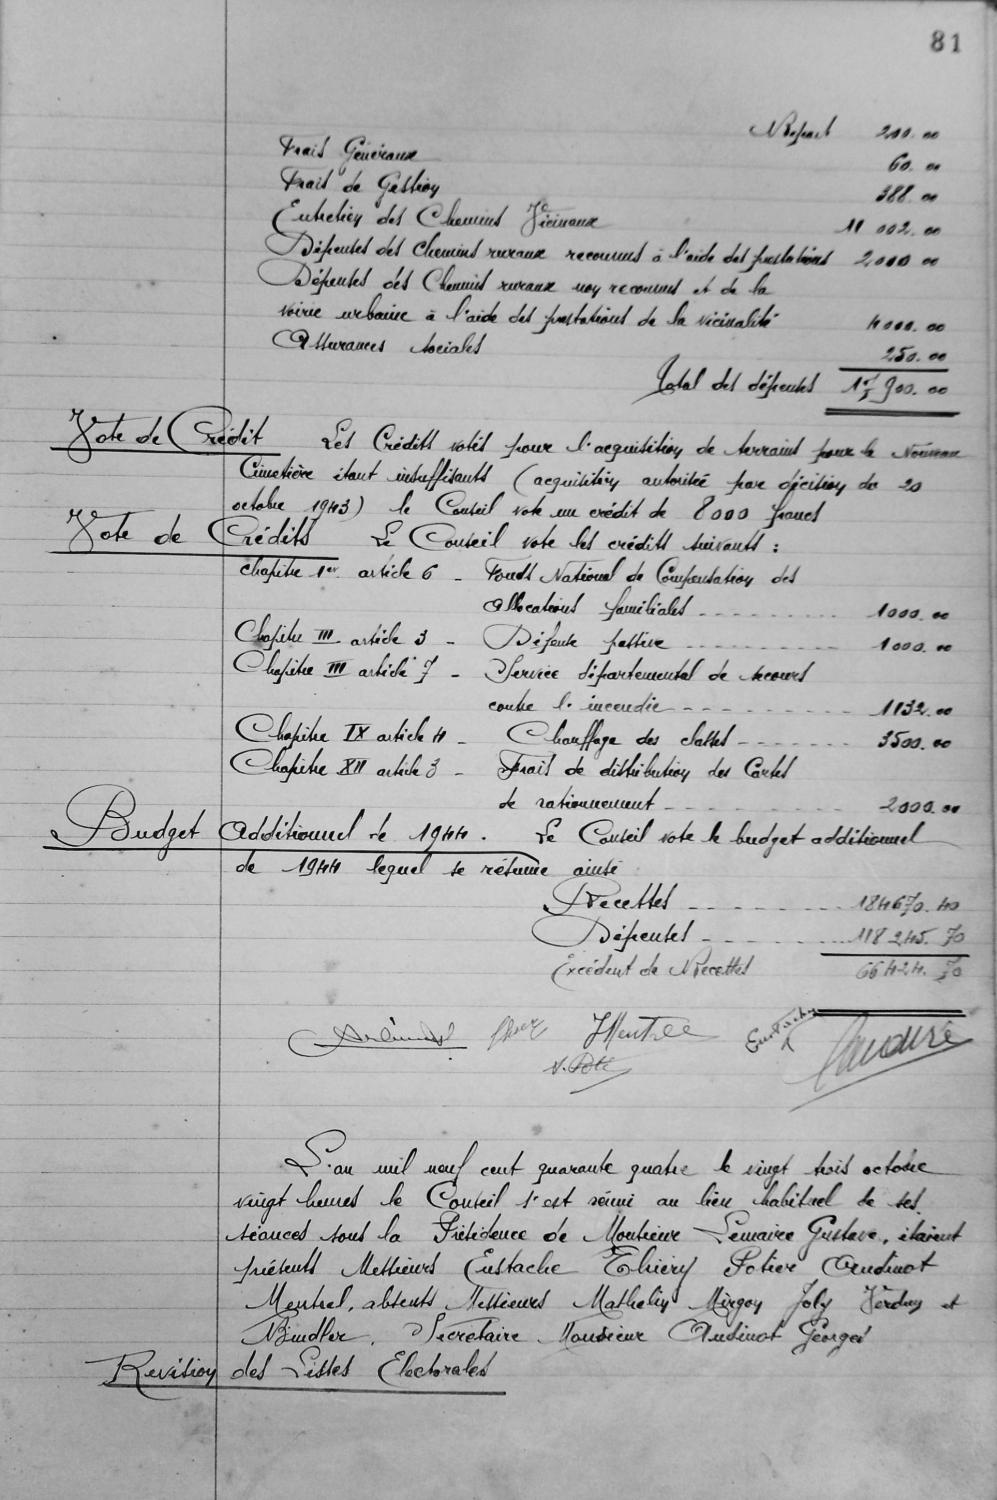 81
Report 200.00
Frais Généraux 60.00
Frais de Gestion 388.00
Entretien des Chemins Vicinaux 11 002.00
Dépenses des chemins ruraux reconnus à l'aide des prestations 2000 00
Dépenses des Chemins ruraux non reconnus et de la
voirie urbaine à l'aide des prestations de la vicinalité 4000.00
Assurances sociales 250.00
Total des dépenses 17 900.00
Vote de Crédit Les Crédits votés pour l'acquisition de terrains pour le Nouveau
Cimetière étant insuffisants (acquisition autorisée par décision du 20
octobre 1943) le Conseil vote un crédit de 8000 francs
Vote de Crédits Le Conseil vote les crédits suivants :
chapitre 1er article 6 - Fonds National de Compensation des
Allocations familiales 1000.00
Chapitre III article 3 - Défense passive 1000.00
Chapitre III article 7 - Service départemental de secours
contre l'incendie 1132.00
Chapitre IX article 4 - Chauffage des classes 3500.00
Chapitre XII article 3 - Frais de distribution des Cartes
de rationnement 2000.00
Budget Additionnel de 1944. Le Conseil vote le budget additionnel
de 1944 lequel se résume ainsi
Recettes 184670.40
Dépenses 118 245.70
Excédent de Recettes 66424.70
Mentrel Eustache
L'an mil neuf cent quarante quatre le vingt trois octobre
vingt heures le Conseil s'est réuni au lieu habituel de ses
séances sous la Présidence de Monsieur Lemaire Gustave, étaient
présents Messieurs Eustache Thiéry Potier Audinot
Mentrel, absents Messieurs Mathelin Mirgon Joly Verdun et
Bindler. Secrétaire Monsieur Audinot Georges
Revision des Listes Electorales